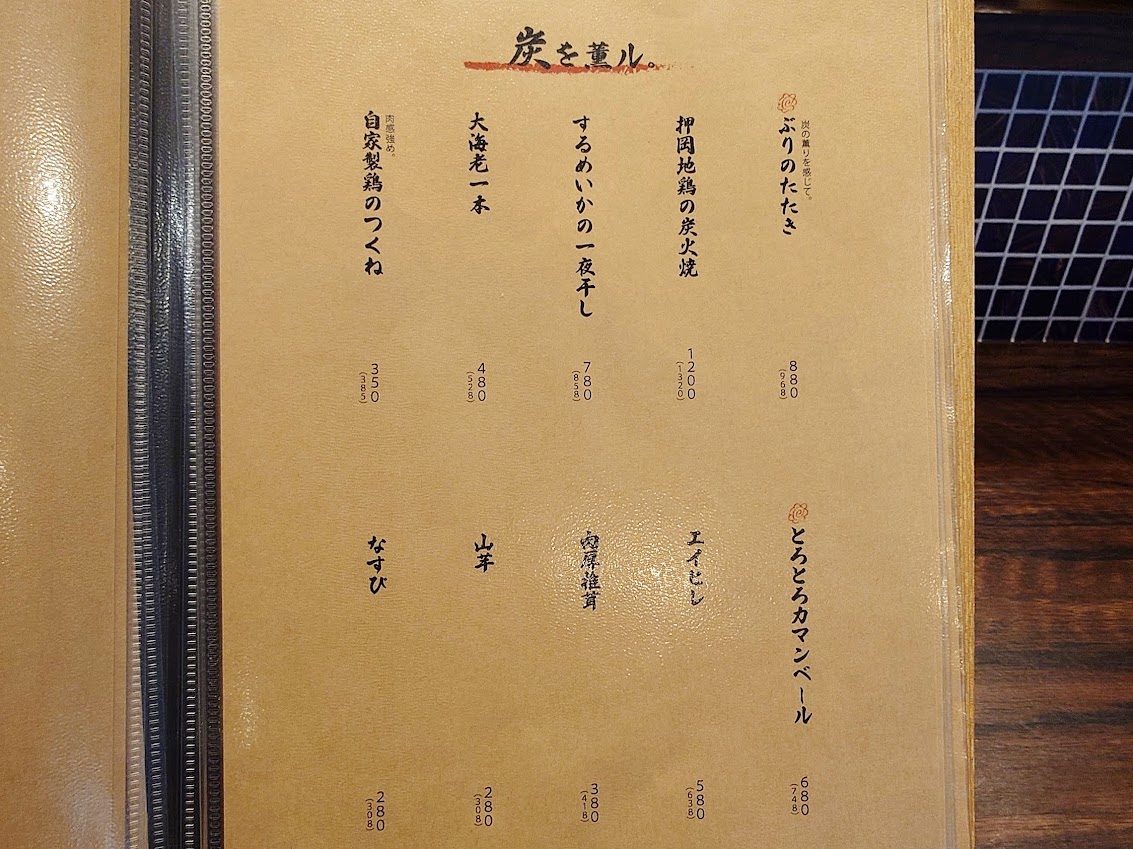 炭を薫ル。
炭の薫りを感じて。
ぶりのたたき
880
(968)
押岡地鶏の炭火焼
1200
(1320)
するめいかの一夜干し
780
(858)
大海老一本
480
(528)
肉感強め。
自家製鶏のつくね
350
(385)
とろとろカマンベール
680
(748)
エイヒレ
580
(638)
肉厚椎茸
380
(418)
山芋
280
(308)
なすび
280
(308)